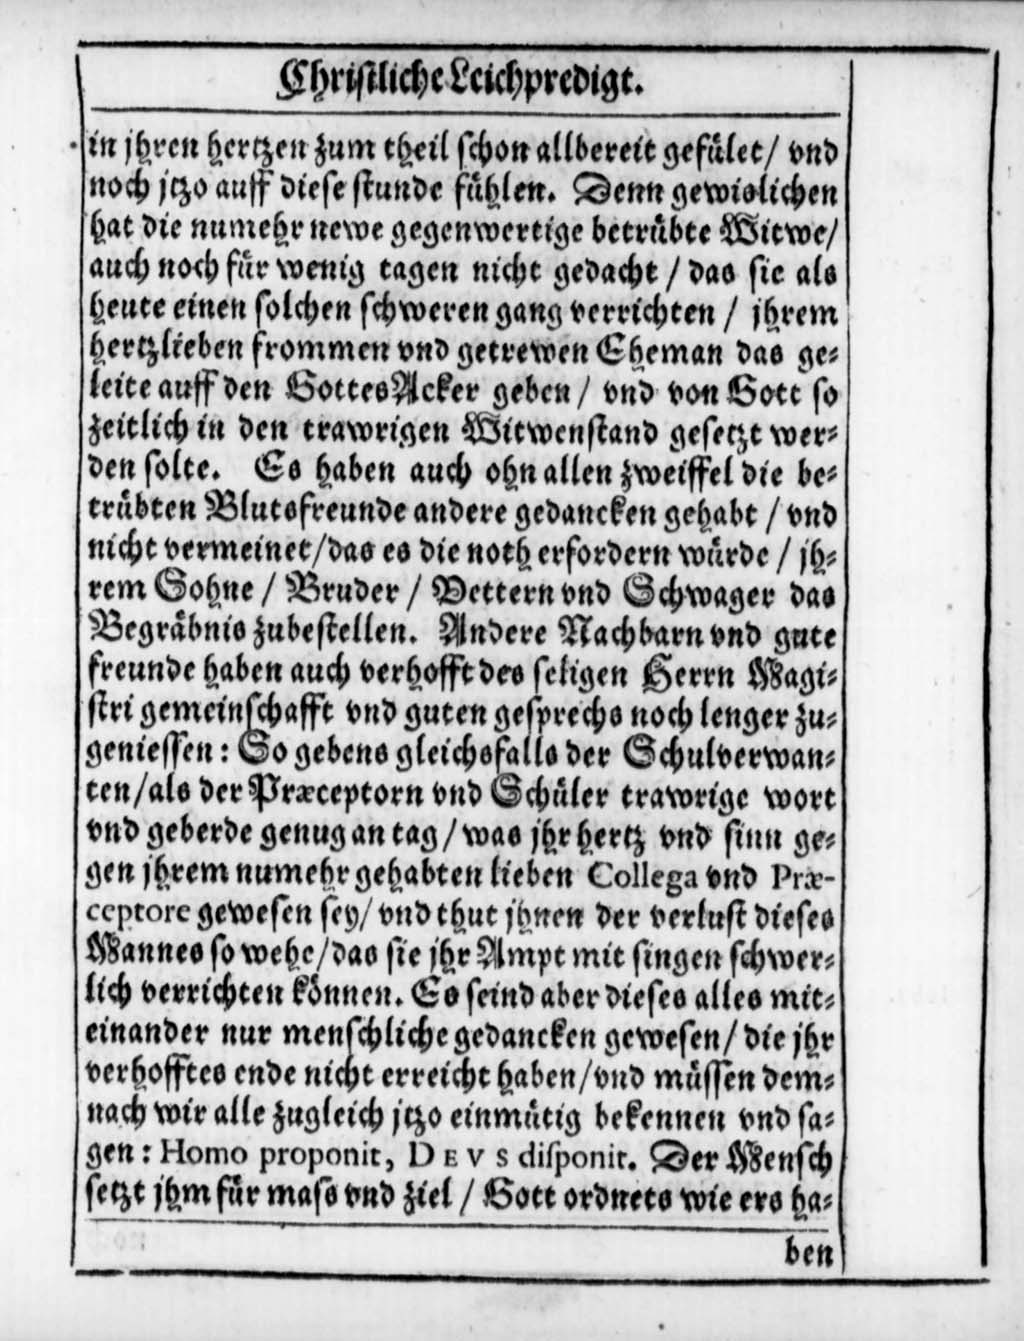 Christliche Leichpredigt.
in jhren hertzen zum theil schon allbereit gefület/ vnd
noch jtzo auff diese stunde fühlen. Denn gewislichen
hat die numehr newe gegenwertige betrübte Witwe/
auch noch für wenig tagen nicht gedacht / das sie als
heute einen solchen schweren gang verrichten / jhrem
hertzlieben frommen vnd getrewen Eheman das ge-
leite auff den GottesAcker geben / vnd von Gott so
zeitlich in den trawrigen Witwenstand gesetzt wer-
den solte. Es haben auch ohn allen zweiffel die be-
trübten Blutsfreunde andere gedancken gehabt / vnd
nicht vermeinet/das es die noth erfordern würde / jh-
rem Sohne / Bruder / Vettern vnd Schwager das
Begräbnis zubestellen. Andere Nachbarn vnd gute
freunde haben auch verhofft des seligen Herrn Magi-
stri gemeinschafft vnd guten gesprechs noch lenger zu-
geniessen: So gebens gleichsfalls der Schulverwan-
ten/als der Præceptorn vnd Schüler trawrige wort
vnd geberde genug an tag/was jhr hertz vnd sinn ge-
gen jhrem numehr gehabten lieben Collega vnd Præ-
ceptore gewesen sey/vnd thut jhnen der verlust dieses
Mannes so wehe/das sie jhr Ampt mit singen schwer-
lich verrichten können. Es seind aber dieses alles mit-
einander nur menschliche gedancken gewesen/ die jhr
verhofftes ende nicht erreicht haben/vnd müssen dem-
nach wir alle zugleich jtzo einmütig bekennen vnd sa-
gen: Homo proponit, DEVS disponit. Der Mensch
setzt jhm für mass vnd ziel / Gott ordnets wie ers ha-
ben